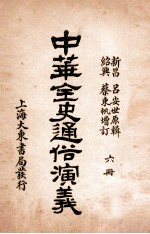 新昌 呂安世原輯
紹興 蔡東帆增訂
六冊
中華全史通俗演義
上海大東書局發行